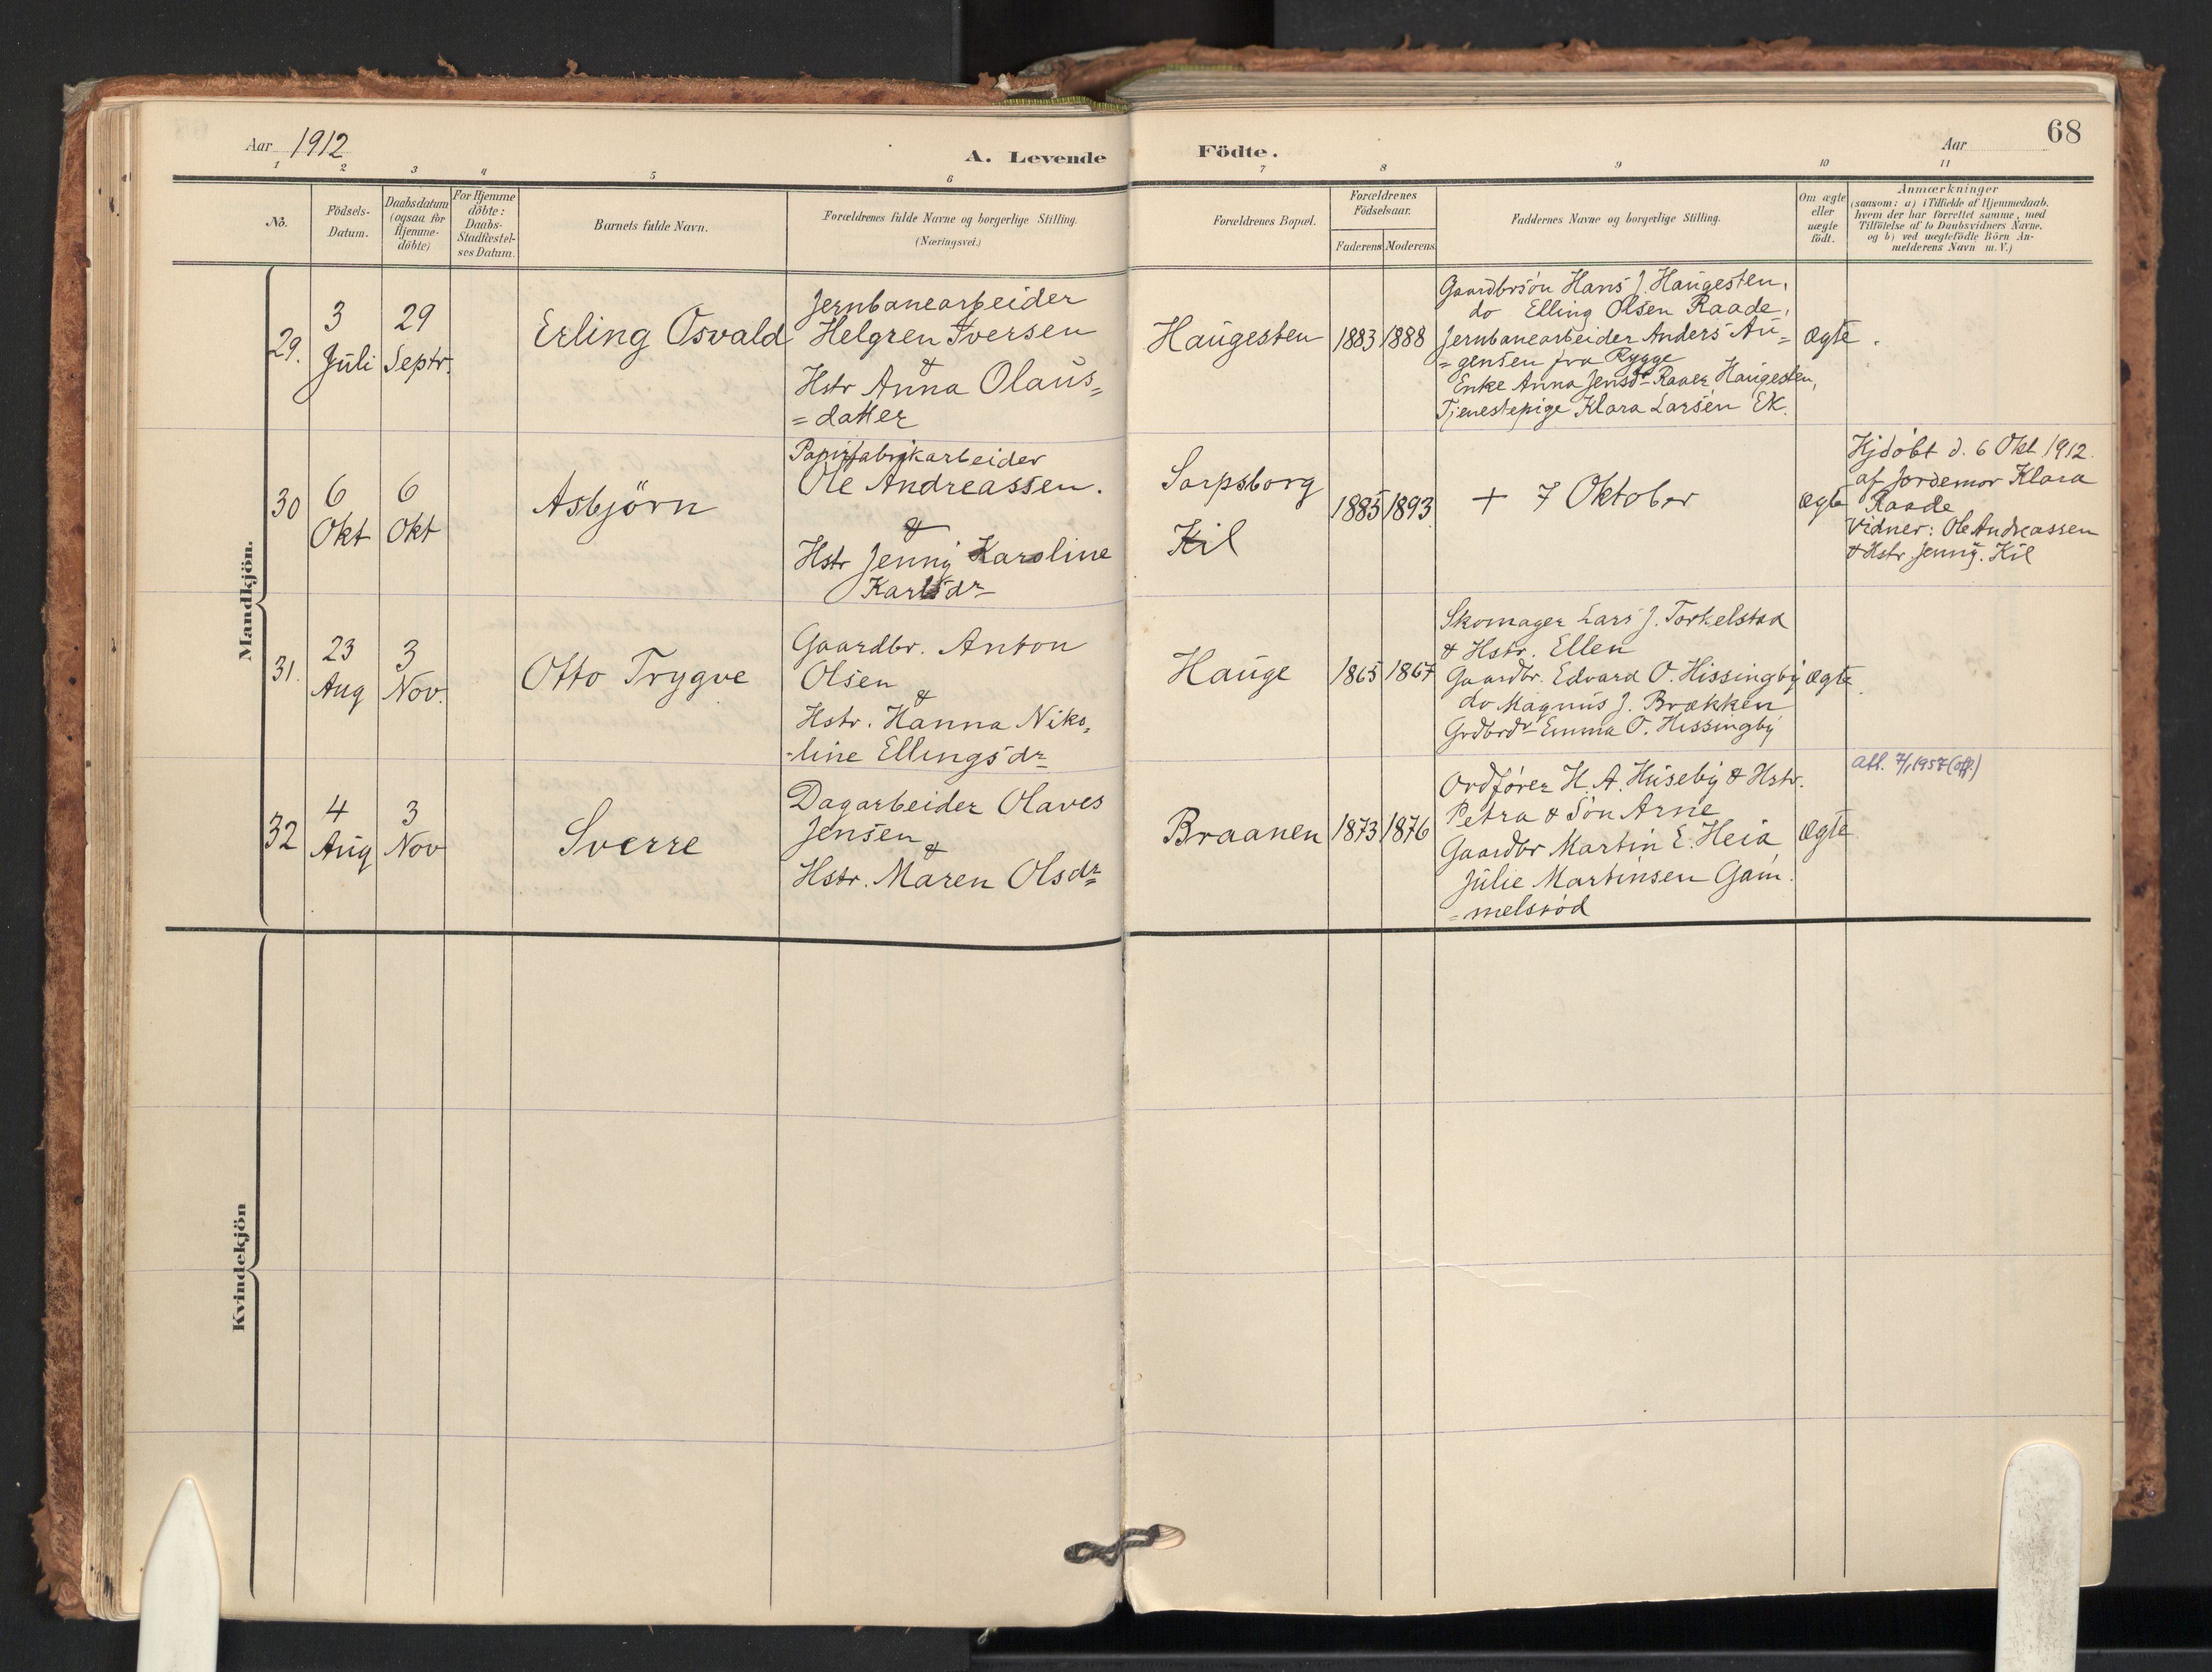 Aar 1912
A. Levende Födte.
Aar
68
1 2 3 4 5 6 7 8 9 10 11
No.
Födsels-
Datum.
Daabsdatum
(ogsaa for
Hjemme-
döbte)
For Hjemme
döbte:
Daabs-
Stadfæstel-
ses Datum.
Barnets fulde Navn.
Forældrenes fulde Navne og borgerlige Stilling.
(Næringsvei.)
Forældrenes Bopæl.
Forældrenes
Födselsaar.
Faderens Moderens
Faddernes Navne og borgerlige Stilling.
Om ægte
eller
uægte
födt.
Anmærkninger
(saasom: a) i Tilfælde af Hjemmedaab.
hvem der har forrettet samme, med
Tilföielse af to Daabsvidners Navne.
og b) ved uægtefödte Börn An-
melderens Navn m. V.)
Mandkjön.
29.
3
Juli
29
Septr.
Erling Osvald
Jernbanearbeider
Helgren Iversen
&
Hstr Anna Olaus=
=datter
Haugesten
1883 1888
Gaardbrsön Hans J. Haugesten,
do Elling Olsen Raade,
Jernbanearbeider Anders Au=
=gensen fra Rygge
Enke Anna Jensdr Raaer Haugesten,
Tjenestepige Klara Larsen Ek.
ægte
30
6
Okt
6
Okt
Asbjörn
Papirfabrikarbeider
Ole Andreassen.
&
Hstr Jenny Karoline
Karlsdr
Sarpsborg
Kil
1885 1893
+ 7 Oktober
ægte
Hjdöbt d. 6 Okt 1912.
af Jordemor Klara
Raade
Vidner: Ole Andreassen
& Hstr Jenny. Kil
31.
23
Aug
3
Nov.
Otto Trygve
Gaardbr. Anton
Olsen
&
Hstr. Hanna Niko,
-line Ellingsdr
Hauge
1865 1867
Skomager Lars J. Torkelstad
& Hstr. Ellen
Gaardbr. Edvard O. Hissingby
do Magnus J. Brækken
Grdbrdr Emma O. Hissingby
ægte
32
4
Aug
3
Nov
Sverre
Dagarbeider Olaves
Jensen
&
Hstr. Maren Olsdr
Braanen
1873 1876
Ordförer H. A. Huseby & Hstr.
Petra & Sön Arne
Gaardbr Martin E. Heia
Julie Martinsen Gam.
=melsröd
ægte
att. 7/1 1957 (off.)
Kvindekjön